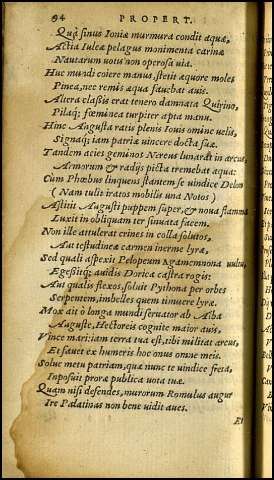 94 PROPERT.
Quà sinus Ioniæ murmura condit aquæ,
Actia Iuleæ pelagus monimenta carinæ
Nautarum uotis non operosa uia.
Huc mundi coiere manus, stetit æquore moles
Pinea, nec remis æqua fauebat auis.
Altera classis erat teucro damnata Quirino,
Pilaq; fœmineæ turpiter apta manu.
Hinc Augusta ratis plenis Iouis omine uelis,
Signaq; iam patriæ uincere docta suæ.
Tandem acies geminos Nereus lunarat in arcus,
Armorum & radijs picta tremebat aqua:
Cum Phœbus linquens stantem se uindice Delon
(Nam tulit iratos mobilis una Notos)
Astitit Augusti puppim super, & noua flamma
Luxit in obliquam ter sinuata facem.
Non ille attulerat crines in colla solutos,
Aut testudineæ carmen inerme lyræ,
Sed quali aspexit Pelopeum Agamemnona uultu,
Egessitq; auidis Dorica castra rogis:
Aut qualis flexos soluit Pythona per orbes
Serpentem, imbelles quem timuere lyræ.
Mox ait ô longa mundi seruator ab Alba
Auguste, Hectoreis cognite maior auis,
Vince mari: iam terra tua est, tibi militat arcus,
Et fauet ex humeris hoc onus omne meis.
Solue metu patriam, quæ nunc te uindice freta,
Inposuit proræ publica uota tuæ.
Quam nisi defendes, murorum Romulus augur
Ire Palatinas non bene uidit aues.
Et